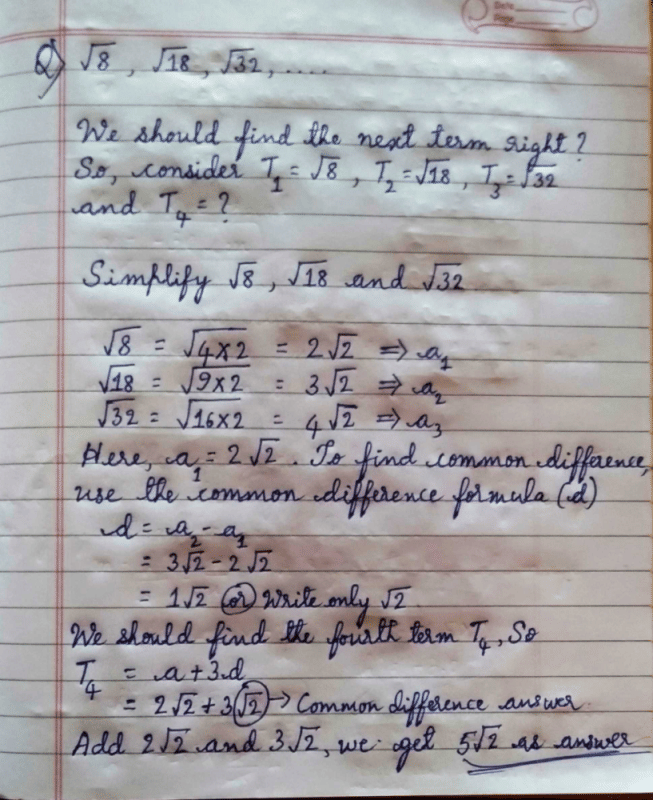 Date.
Page
Q) √8 , √18 , √32, ....
We should find the next term right?
So, consider T₁ = √8 , T₂ = √18 , T₃ = √32
and T₄ = ?
Simplify √8 , √18 and √32
√8 = √4×2 = 2√2 ⇒ a₁
√18 = √9×2 = 3√2 ⇒ a₂
√32 = √16×2 = 4√2 ⇒ a₃
Here, a₁ = 2√2 . To find common difference,
use the common difference formula (d)
d = a₂ - a₁
= 3√2 - 2√2
= 1√2 or Write only √2
We should find the fourth term T₄, So
T₄ = a + 3.d
= 2√2 + 3√2 → Common difference answer
Add 2√2 and 3√2, we get 5√2 as answer